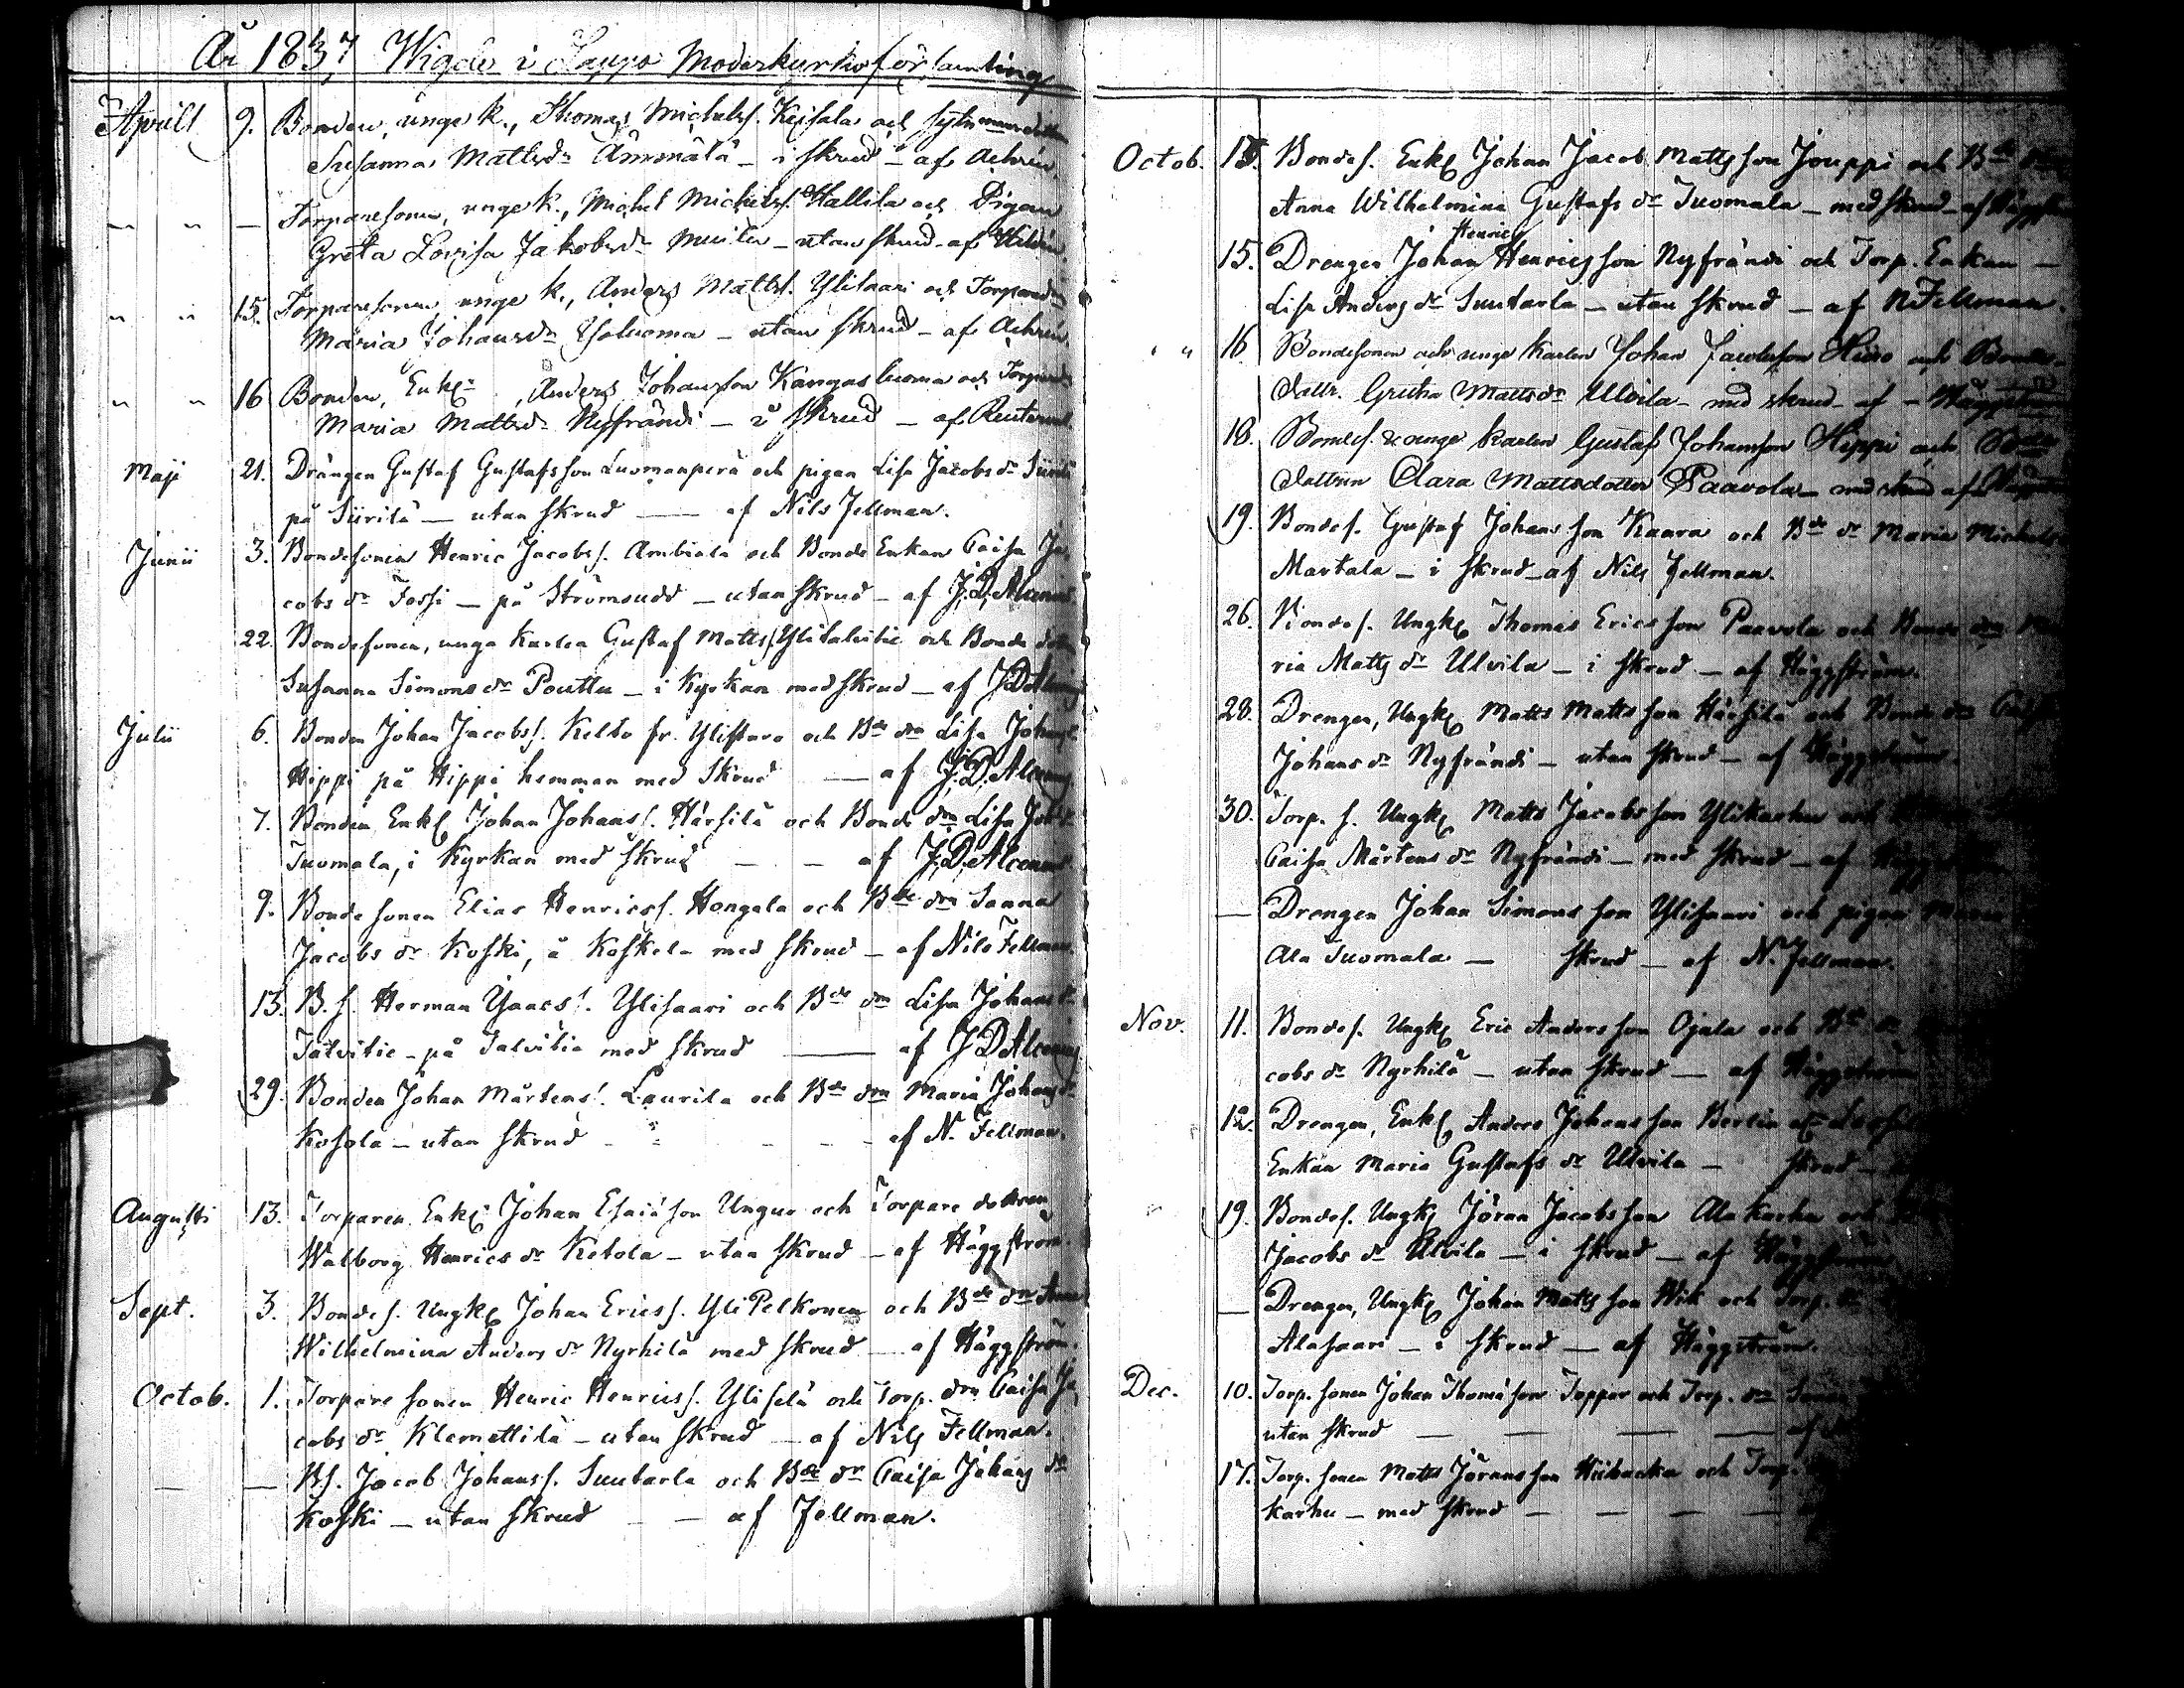 År 1837 Wigde i Lappo Moderkyrkoförsamling
Aprill 9. Bonden, unge k., Thomas Michelss. Keisala och
Susanna Mattsdr Ämmälä - i skrud - af
" " — Torparesonen, unge k., Michel Michelss. Hallila och Pigan
Greta Lovisa Jakobsdr - utan skrud - af
" " 15. Torparesonen, unge k., Anders Mattss. Ylisaari och
Maria Johansdr Isoluoma - utan skrud - af
" " 16 Bonden, Enkl: Anders Johansson Kangasluoma och
Maria Mattsdr Nyfrändi - i skrud - af
Maji 21. Drängen Gustaf Gustafsson Luomanperä och pigan Lisa Jacobsdr Siirilä
på Siirilä — utan skrud — af Nils Fellman.
Junii 3. Bondesonen Henric Jacobss. Ambiala och Bonde Enkan Caisa Ja
cobs dr Fossi — på Strömsudd — utan skrud — af J. D. Alcenius
22. Bondesonen, unga karlen Gustaf Matts. Ylitalvitie och Bonde dottr
Susanna Simons dr Pouttu — i Kyrkan med skrud — af J D Alcenius
Julii 6. Bonden Johan Jacobss. Kelto fr. Ylistaro och Bde drn Lisa Johans dr
Hippi på Hippi hemman med skrud — af J. D. Alcenius
7. Bonden Enkl Johan Johanss. Härsilä och Bonde drn Lisa
Tuomala, i Kyrkan med skrud — — af J. D. Alcenius
9. Bonde sonen Elias Henricss. Hongala och Bde drn Sanna
Jacobs dr Koski, å Koskela med skrud — af Nils Fellman.
13. B. s. Herman Ysaacs. Ylisaari och Bde drn Lisa Johans dr
Talvitie - på Talvitie med skrud — af J D Alcenius
29. Bonden Johan Mårtens. Laurila och Bde drn Maria Johans dr
Kosola — utan skrud — — — af N. Fellman.
Augusti 13. Torparen Enkl Johan Esaiæson Ungur och Torpare dottren
Walborg Henrics dr Ketola — utan skrud — af Häggström.
Sept. 3. Bondes. Ungkl Johan Ericss. Yli Pelkonen och Bde drn Anna
Wilhelmina Anders dr Nyrhilä med skrud — af Häggström.
Octob. 1. Torpare sonen Henric Henricss. Yliselä och Torp. drn Caisa Ja
cobs dr Klemettilä — utan skrud — af Nils Fellman.
— — Bs. Jacob Johanss. Suutarla och Bde dr Caisa Johans dr
Koski — utan skrud — — af Fellman.
Octob. 15. Bondes. Enkl Johan Jacob Mattsson Jouppi och Bde
Anna Wilhelmina Gustafs dr Tuomala — med skrud — af
Henric
15. Drengen Johan Henricsson Nyfrändi och Torp. Enkan —
Lisa Anders dr Suutarla — utan skrud — af N Fellman.
" " 16. Bondesonen och unge Karlen Johan Jacobsson Hiiro och Bonde
dottr. Gretha Mattsdr Ulvila - med skrud - af - Häggström
18. Bondes. & unge karlen Gustaf Johansson Hippi och
dattren Clara Mattsdotter Paavola - med skrud af
19. Bondes. Gustaf Johansson Kaara och Bde dr Maria Michels
Martala — i skrud — af Nils Fellman.
26. Bondes. Ungkl Thomas Ericsson Paavola och Bonde drn
ria Matts dr Ulvila — i skrud — af Häggström.
28. Drengen, Ungkl Matts Mattsson Härsilä och Bonde drn
Johans dr Nyfrändi — utan skrud — af Häggström.
30. Torp. s. Ungkl Matts Jacobsson Ylikarhu och
Caisa Mårtens dr Nyfrändi — med skrud — af
— Drengen Johan Simonsson Ylisaari och pigan Maria
Ala Tuomala — skrud — af N. Fellman.
Nov. 11. Bondes. Ungkl Eric Andersson Ojala och Bde dr
cobs dr Nyrhilä — utan skrud — af Häggström
12. Drengen, Enkl, Anders Johansson Berlin
Enkan Maria Gustafs dr Ulvila — skrud —
19. Bondes. Ungkl Jöran Jacobsson Ala Karhu och
Jacobs dr Ulvila — i skrud — af Häggström
— Drengen, Ungkl Johan Mattsson Wik och Torp. dr
Alasaari — i skrud — af Häggström.
Dec. 10. Torp. sonen Johan Thomasson Toppar och Torp. drn
utan skrud — — — — af
17. Torp. sonen Matts Jöransson Hiibacka och Torp.
karhu — med skrud — — — —